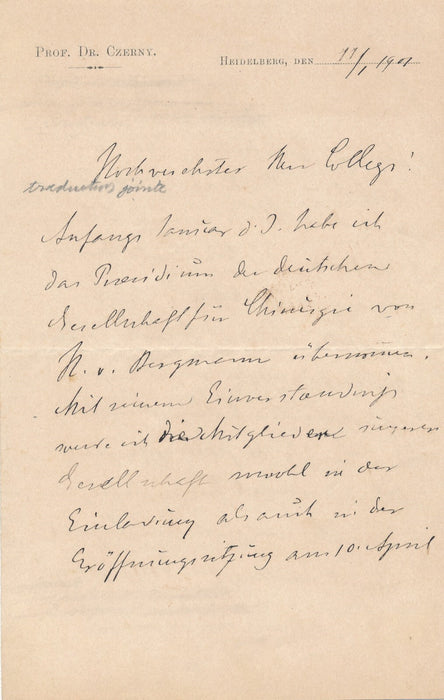 PROF. DR. CZERNY.
HEIDELBERG, DEN 11/1 1901
Hochverehrter Herr College!
traduction jointe
Anfangs Januar d. J. habe ich
das Praesidium der deutschen
Gesellschaft für Chirurgie von
H. v. Bergmann übernommen.
Mit seinem Einverständniss
werde ich die Mitglieder unserer
Gesellschaft sowohl in der
Einladung als auch in der
Eröffnungssitzung am 10. April